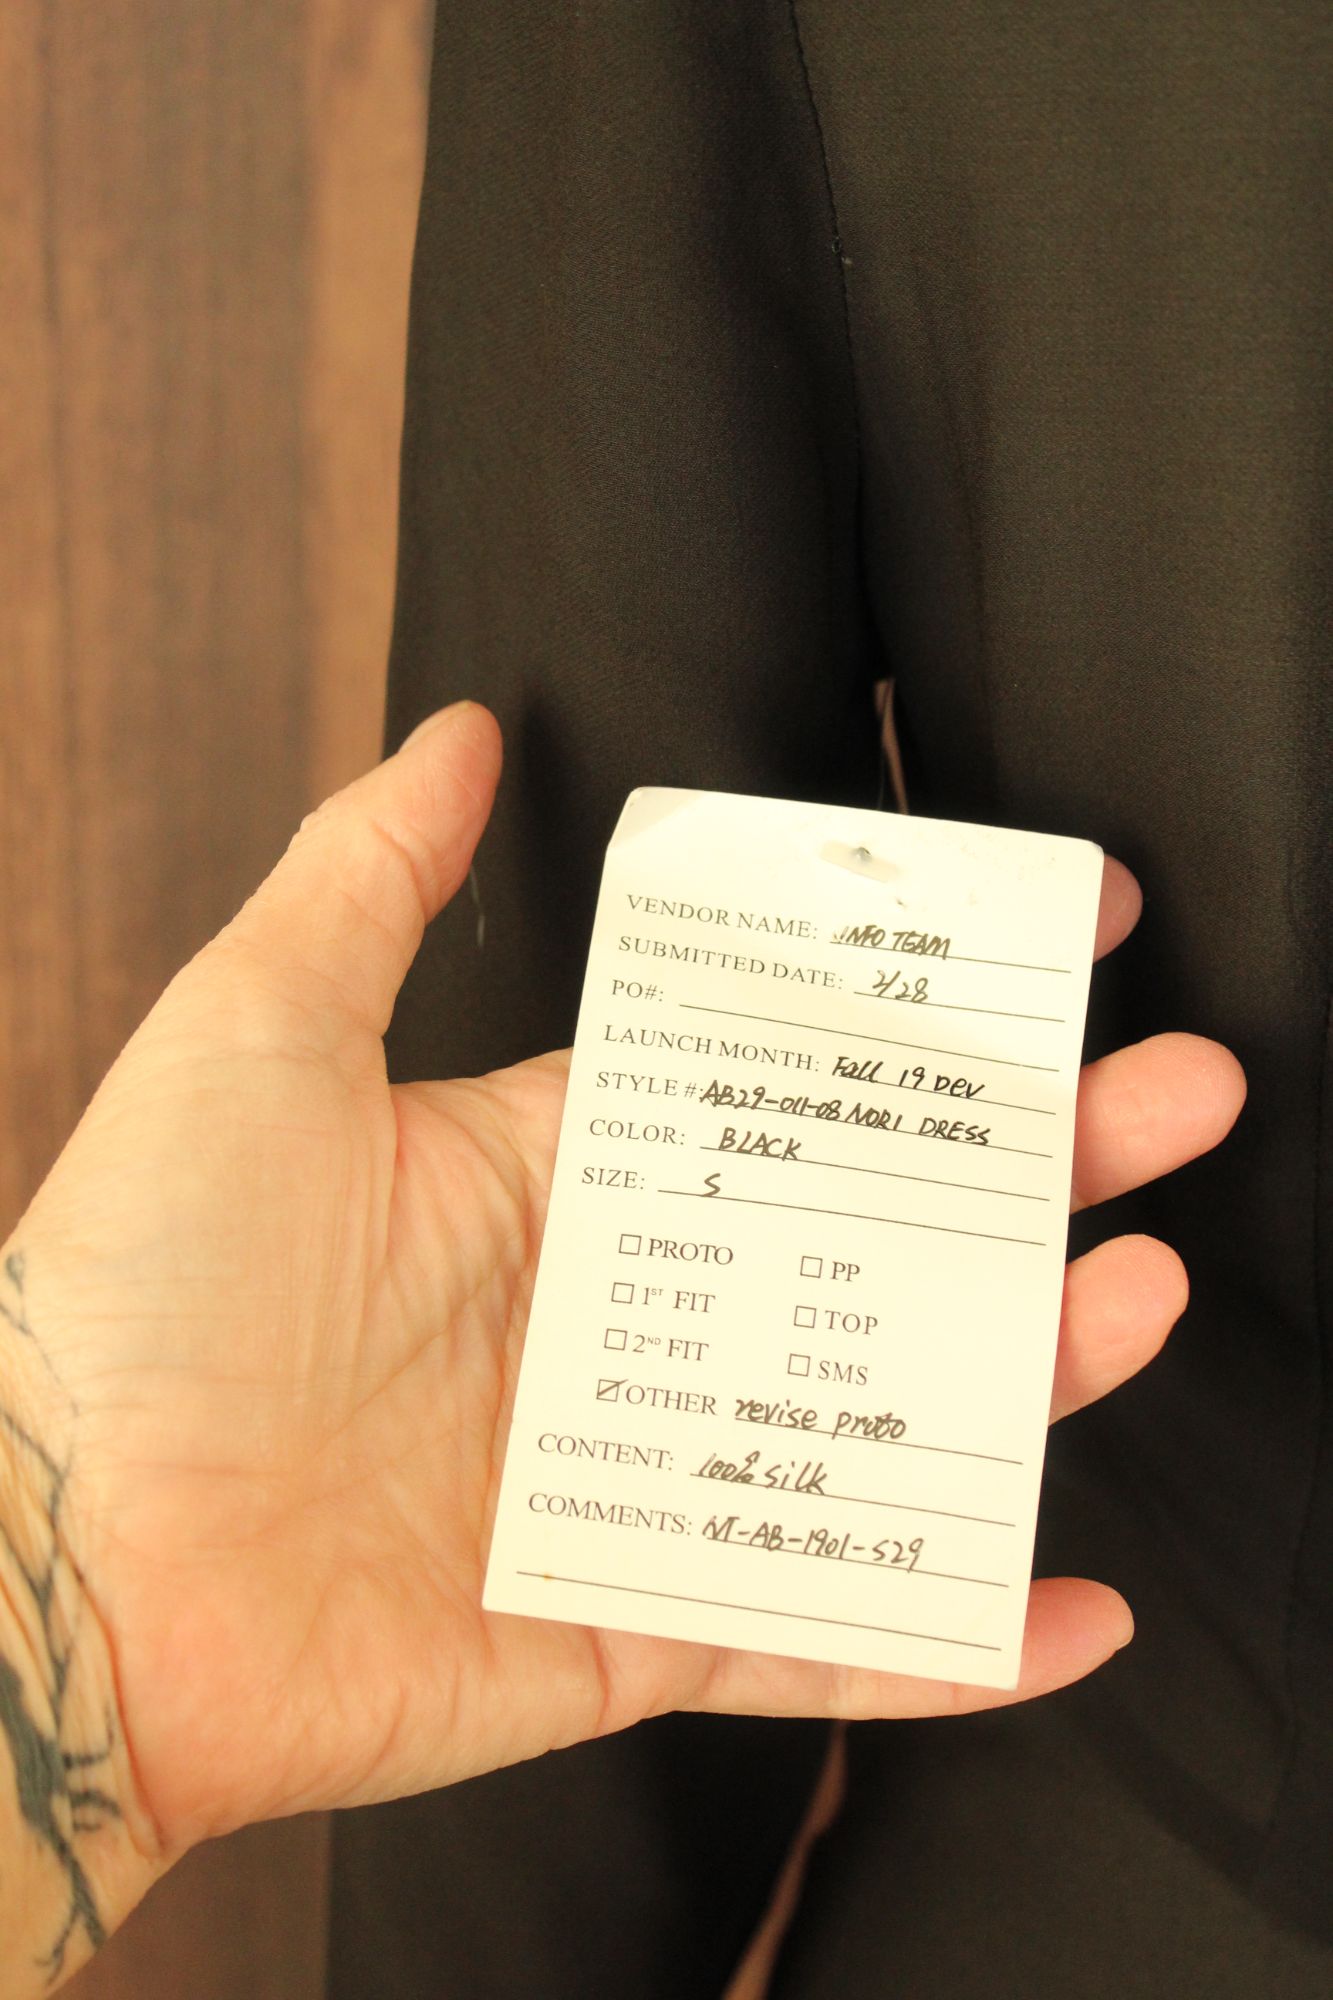 VENDOR NAME: INFO TEAM
SUBMITTED DATE: 2/28
PO#:
LAUNCH MONTH: Fall 19 Dev
STYLE #: AB29-011-08 NORI DRESS
COLOR: BLACK
SIZE: S
PROTO PP
1ST FIT TOP
2ND FIT SMS
OTHER revise proto
CONTENT: 100% silk
COMMENTS: NT-AB-1901-S29